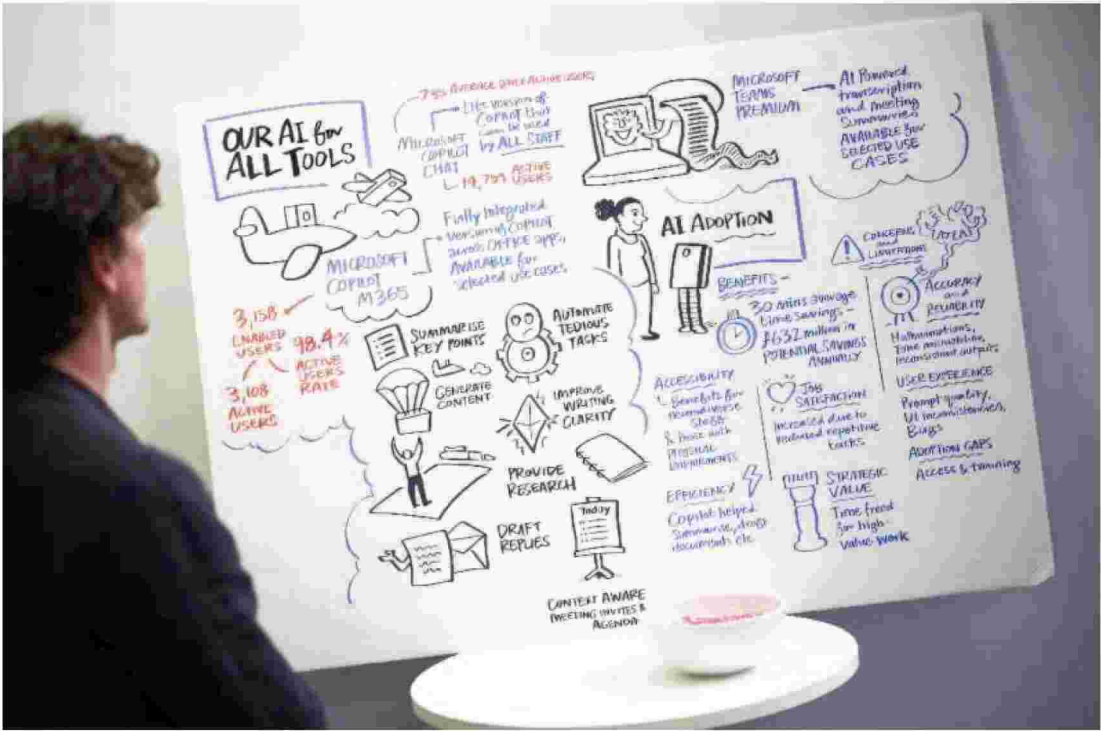 OUR AI for
ALL TOOLS
AVERAGE DAILY ACTIVE USERS
MICROSOFT
COPILOT
CHAT
Lite version of
COPILOT that
can be used
by ALL STAFF
ACTIVE
USERS
MICROSOFT
COPILOT
M365
Fully Integrated
version of COPILOT
across OFFICE apps,
AVAILABLE for
selected use cases
3,158
ENABLED
USERS
98.4%
ACTIVE
USERS
RATE
3,108
ACTIVE
USERS
SUMMARISE
KEY POINTS
AUTOMATE
TEDIOUS
TASKS
GENERATE
CONTENT
IMPROVE
WRITING
CLARITY
PROVIDE
RESEARCH
DRAFT
REPLIES
Today
CONTEXT AWARE
MEETING INVITES &
AGENDA
MICROSOFT
TEAMS
PREMIUM
AI Powered
transcription
and meeting
Summaries
AVAILABLE for
SELECTED USE
CASES
AI ADOPTION
BENEFITS -
30 mins average
time savings -
£632 million in
POTENTIAL SAVINGS
ANNUALLY
ACCESSIBILITY
Benefits for
neurodiverse
staff
& those with
PHYSICAL
IMPAIRMENTS
JOB
SATISFACTION
Increased due to
reduced repetitive
tasks
EFFICIENCY
Copilot helped
Summarise, draft
documents etc
STRATEGIC
VALUE
Time freed
for high-
value work
CONCERNS
and
LIMITATIONS
ACCURACY
and
RELIABILITY
Hallucinations,
inconsistent outputs
USER EXPERIENCE
Prompt quality,
UI inconsistencies,
Bugs
ADOPTION GAPS
Access & training